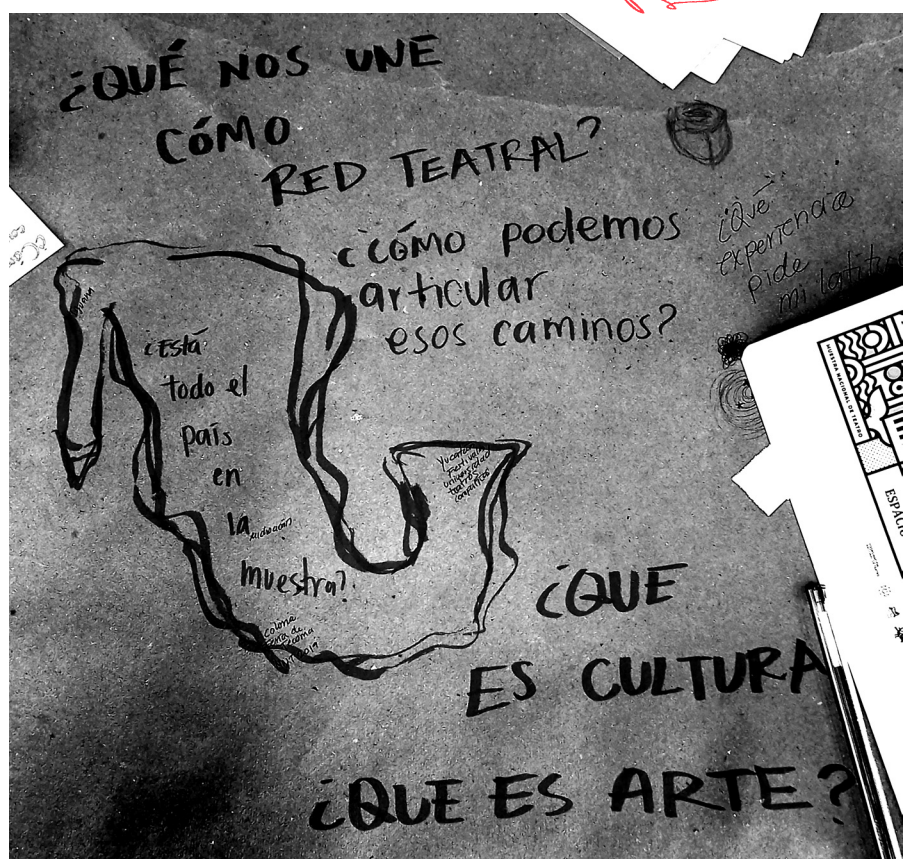 ¿QUÉ NOS UNE
CÓMO
RED TEATRAL?
¿CÓMO podemos
articular
esos caminos?
¿Qué
experiencia
pide
mi latitu
¿Está
todo el
país
en
la
muestra?
Yucatán
Festivales
universidad
teatros
compañías
colonia
¿QUE
ES CULTURA
¿QUE ES ARTE?
MUESTRA NACIONAL DE TEATRO
ESPACIO